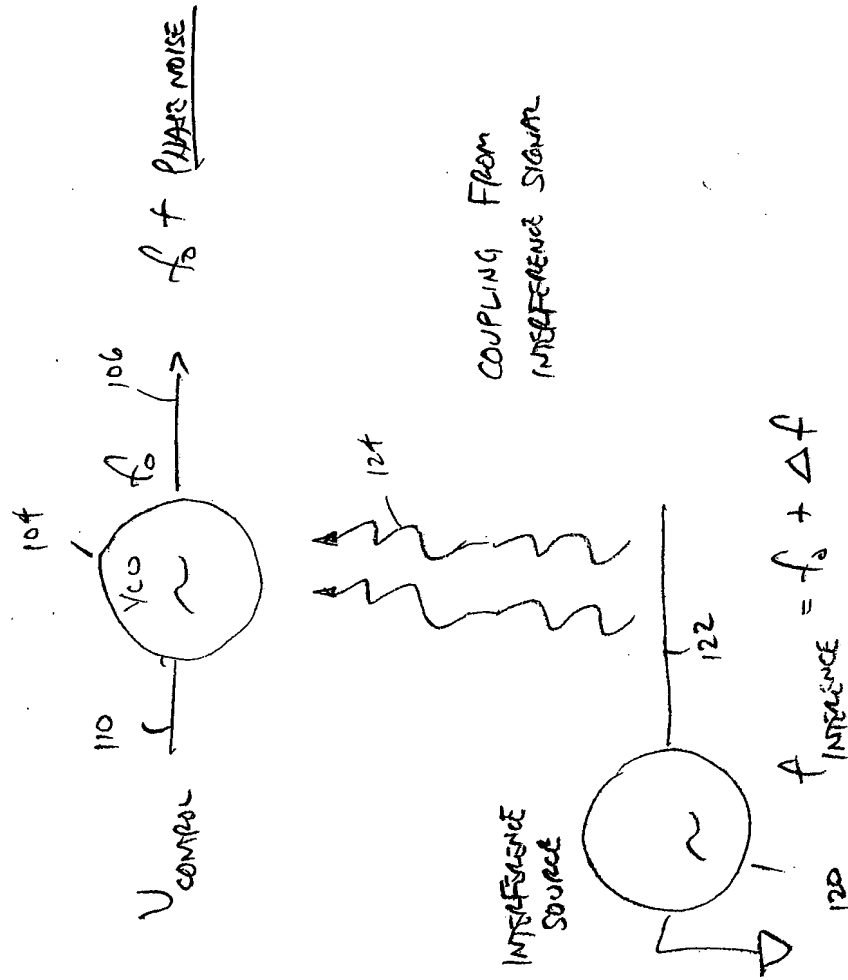 104
VCO
110
f₀
106
U CONTROL
f₀ + PHASE NOISE
124
COUPLING FROM
INTERFERENCE SIGNAL
INTERFERENCE
SOURCE
122
120
f INTERFERENCE = f₀ + Δf